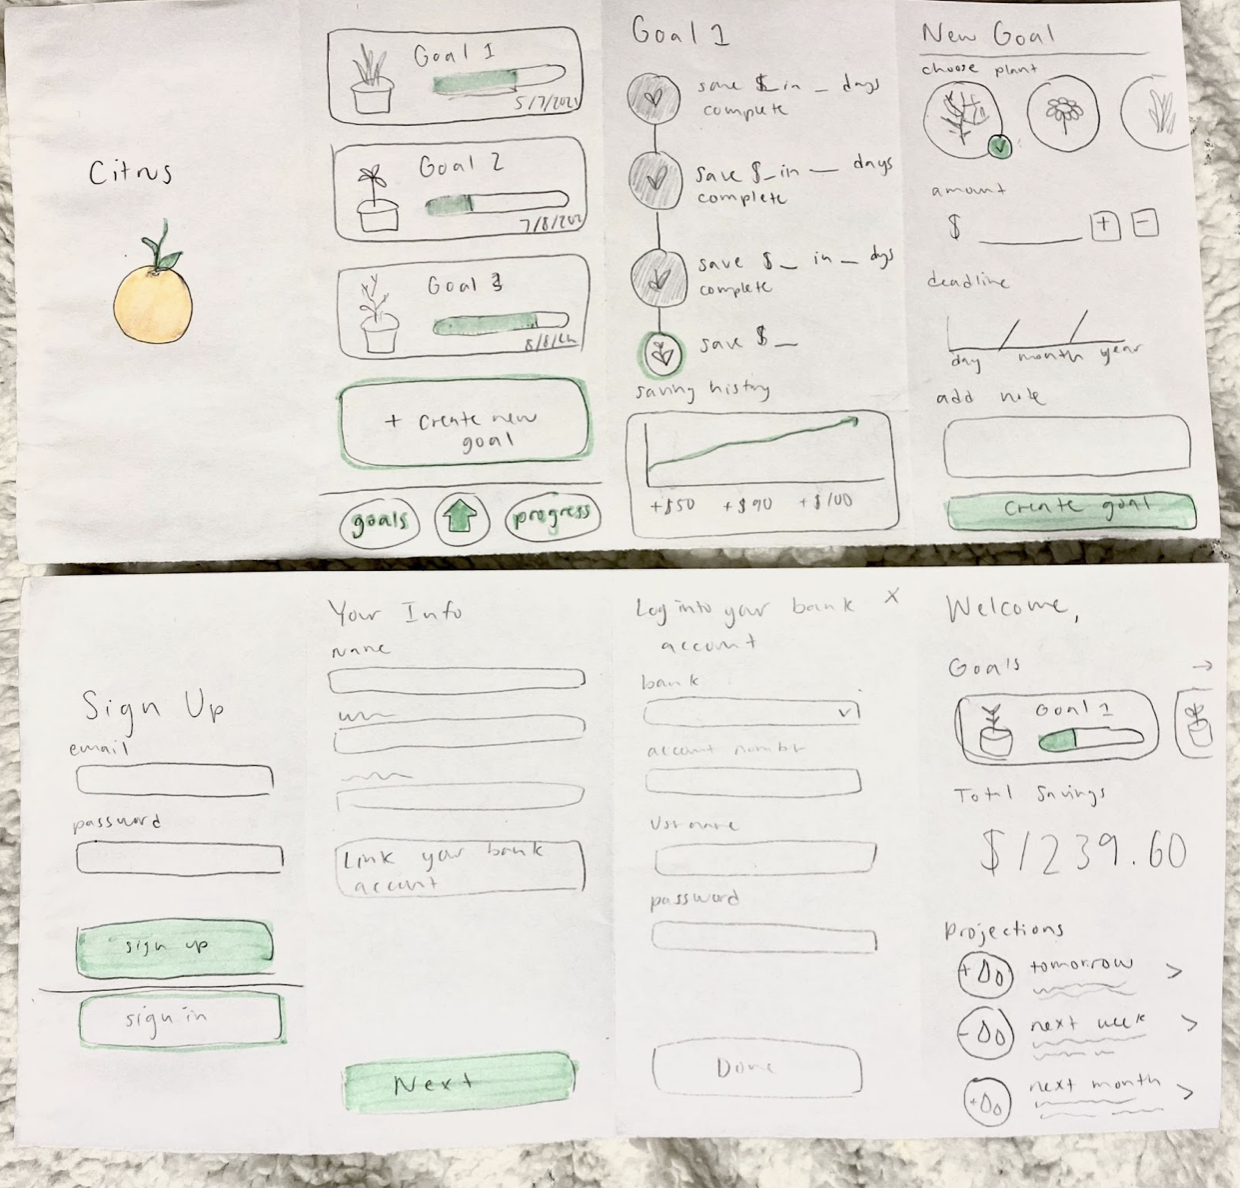 Citrus
Goal 1
5/7/202
Goal 2
7/8/202
Goal 3
8/8/
+ create new
goal
goals
progress
Goal 1
save $_ in _ days
complete
save $_ in __ days
complete
save $_ in _ dys
complete
save $_
saving history
+$50 +$90 +$100
New Goal
choose plant
amount
$ ______ + -
deadline
day month year
add note
create goal
Sign Up
email
password
sign up
sign in
Your Info
name
Link your bank
account
Next
Log into your bank X
account
bank
account number
username
password
Done
Welcome,
Goals →
Goal 1
Total Savings
$1239.60
Projections
tomorrow >
next week >
next month >